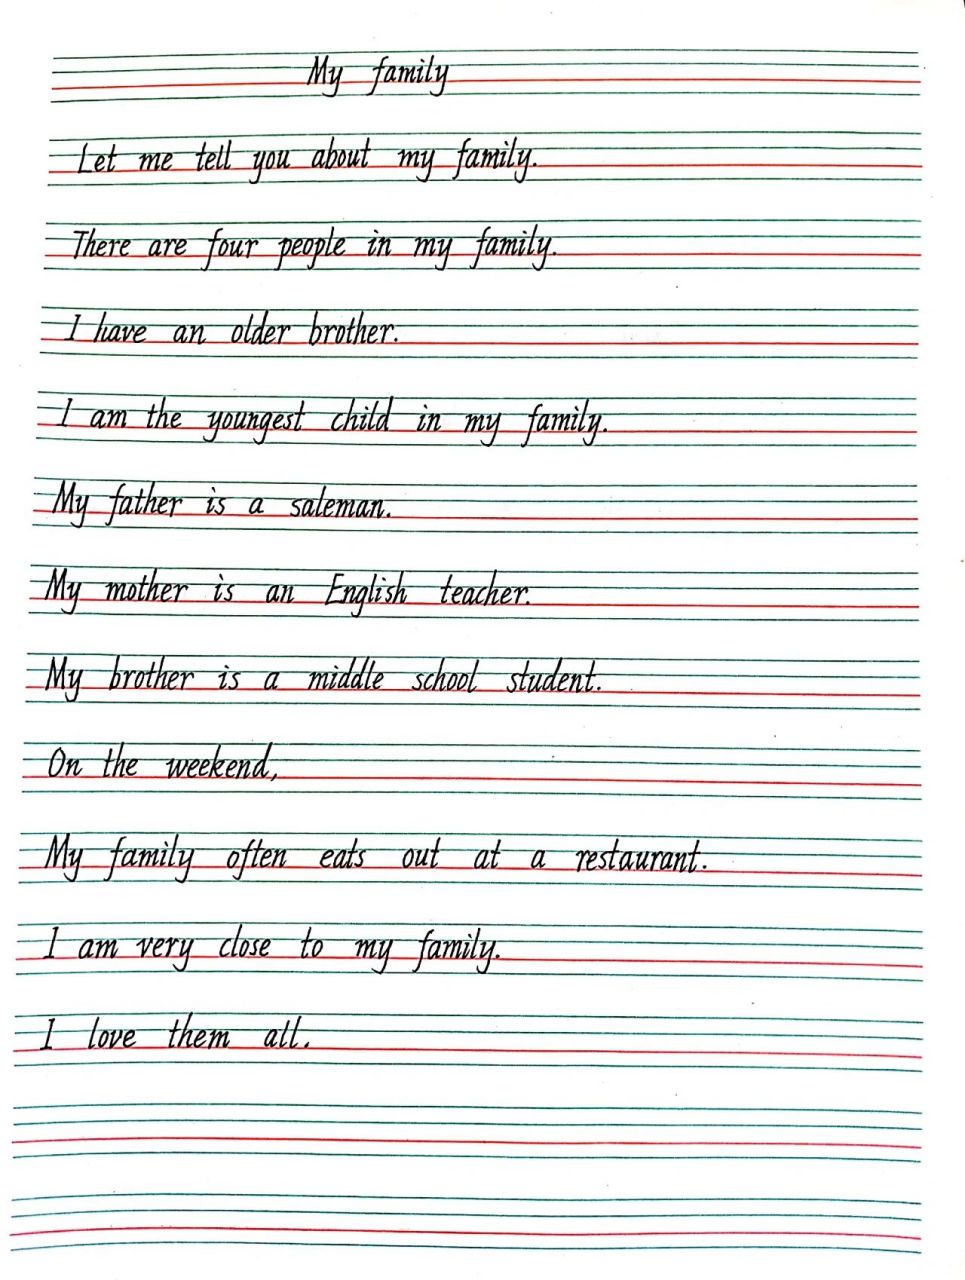 My family
Let me tell you about my family.
There are four people in my family.
I have an older brother.
I am the youngest child in my family.
My father is a saleman.
My mother is an English teacher.
My brother is a middle school student.
On the weekend,
My family often eats out at a restaurant.
I am very close to my family.
I love them all.